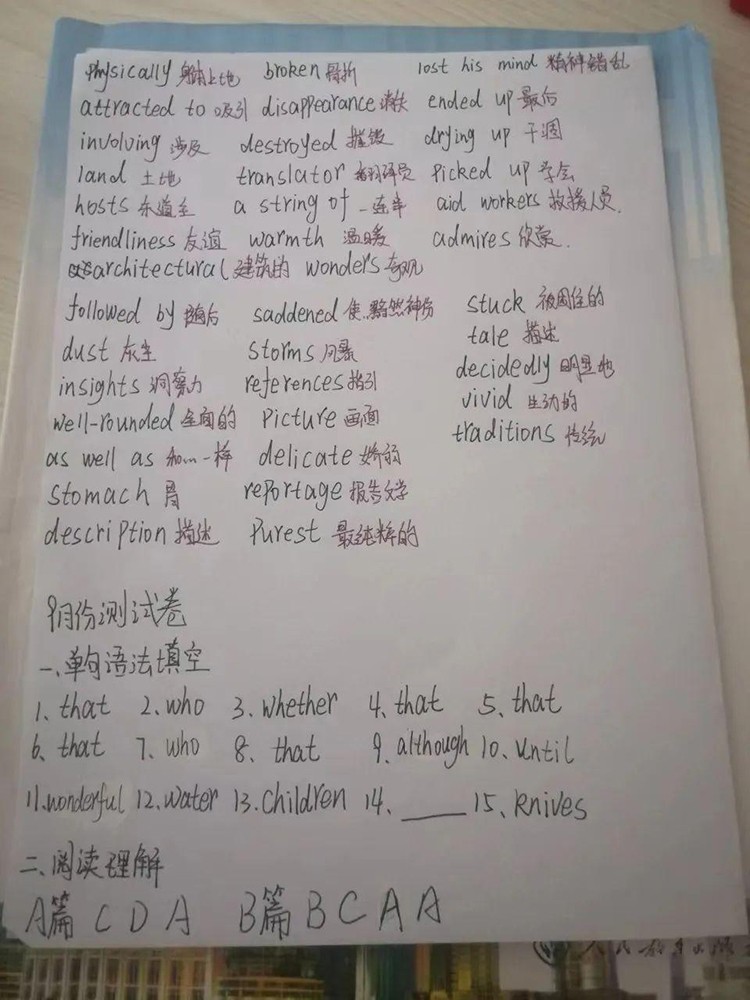 physically 身体上地 broken 骨折 lost his mind 精神错乱
attracted to 吸引 disappearance 消失 ended up 最后
involving 涉及 destroyed 摧毁 drying up 干涸
land 土地 translator 翻译员 picked up 学会
hosts 东道主 a string of 一连串 aid workers 救援人员.
friendliness 友谊 warmth 温暖 admires 欣赏.
architectural 建筑的 wonders 奇观
followed by 随后 saddened 使黯然神伤 stuck 被困住的
tale 描述
dust 灰尘 storms 风暴
decidedly 明显地
insights 洞察力 references 指引
vivid 生动的
well-rounded 全面的 picture 画面
traditions 传统
as well as 和…一样 delicate 娇弱
stomach 胃 reportage 报告文学
description 描述 purest 最纯粹的
9月份测试卷
一、单句语法填空
1、that 2、who 3、whether 4、that 5、that
6、that 7、who 8、that 9、although 10、until
11、wonderful 12、water 13、children 14、____ 15、knives
二、阅读理解
A篇 C D A B篇 B C A A
人民教育出版